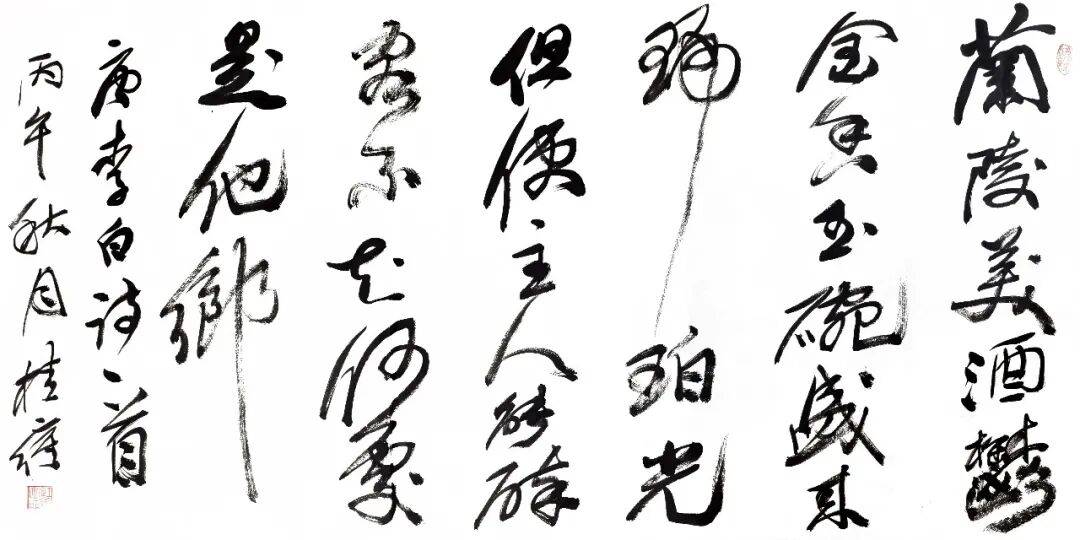 蘭陵美酒鬱
金香玉碗盛来
琥珀光
但使主人能醉
客不知何處
是他鄉
唐李白詩一首
丙午秋月桂